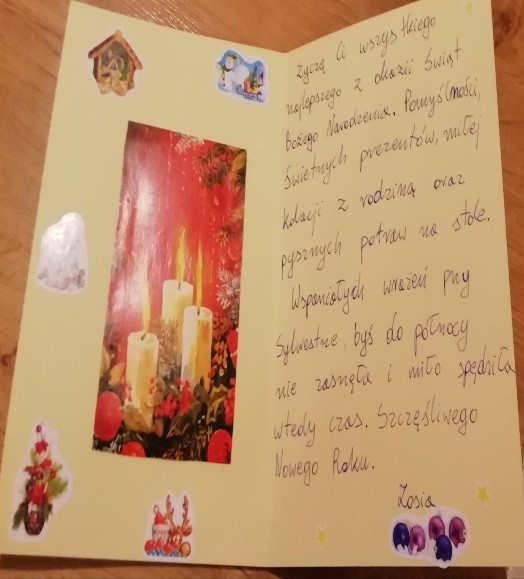 Życzę Ci wszystkiego
najlepszego z okazii Świąt
Bożego Narodzenia. Pomyślności,
świetnych prezentów, miłej
kolacji z rodziną oraz
pysznych potraw na stole.
Wspaniałych wrażeń przy
Sylwestrze, byś do północy
nie zasnęła i miło spędziła
wtedy czas. Szczęśliwego
Nowego Roku.
Zosia